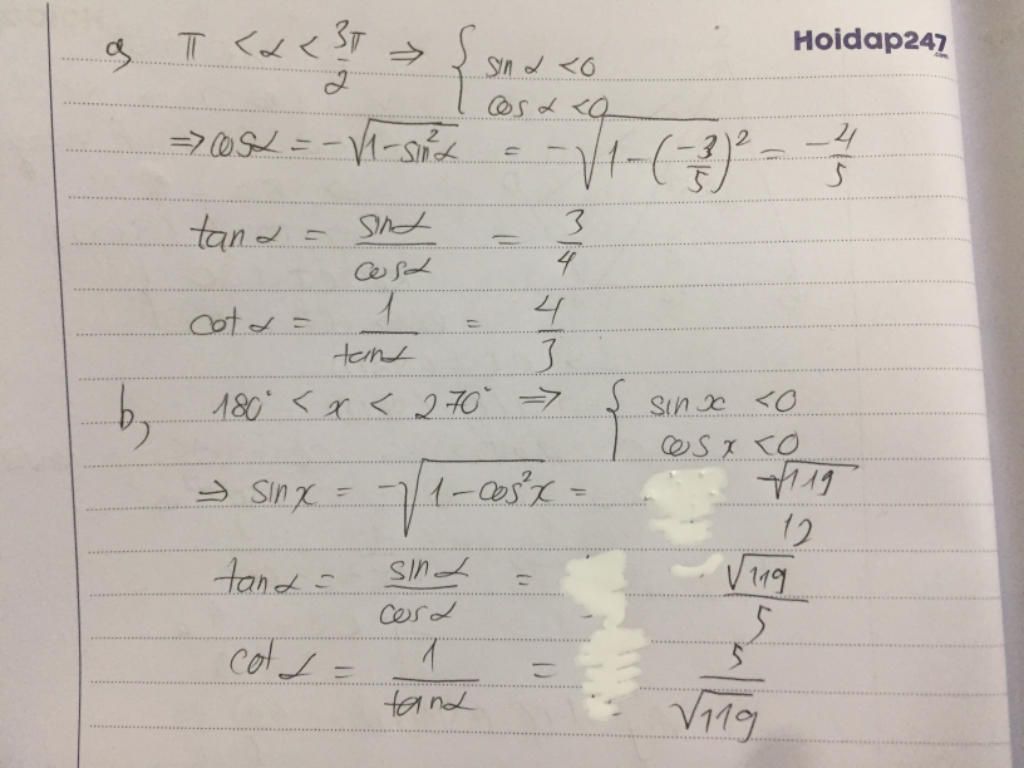 Hoidap247
.com
a, π < α < 3π/2 ⇒ { sin α < 0
cos α < 0
⇒ cosα = -√(1-sin²α) = -√(1-(-3/5)²) = -4/5
tan α = sinα/cosα = 3/4
cot α = 1/tanα = 4/3
b, 180° < x < 270° ⇒ { sin x < 0
cos x < 0
⇒ sin x = -√(1-cos²x) = -√119/12
tan α = sinα/cosα = √119/5
cot α = 1/tanα = 5/√119